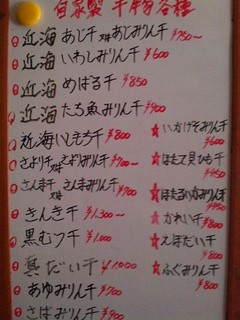 自家製 干物各種
近海あじ干又はあじみりん干 ¥750～
近海いわしみりん干 ¥600
近海めばる干 ¥850
近海たち魚みりん干 ¥900
近海いしもち干 ¥800
さより干又はさよりみりん干 ¥700～
さんま干又はさんまみりん干 ¥700
きんき干 ¥1,300～
黒むつ干 ¥1,000
真だい干 ¥1,000
あゆみりん干 ¥700
さばみりん干 ¥700
★いかげそみりん干 ¥600
★ほたて貝ひも干 ¥450
★ほたるいかみりん干 ¥450
★かれい干 ¥800
★えぼだい干 ¥800
★ふぐみりん干 ¥800